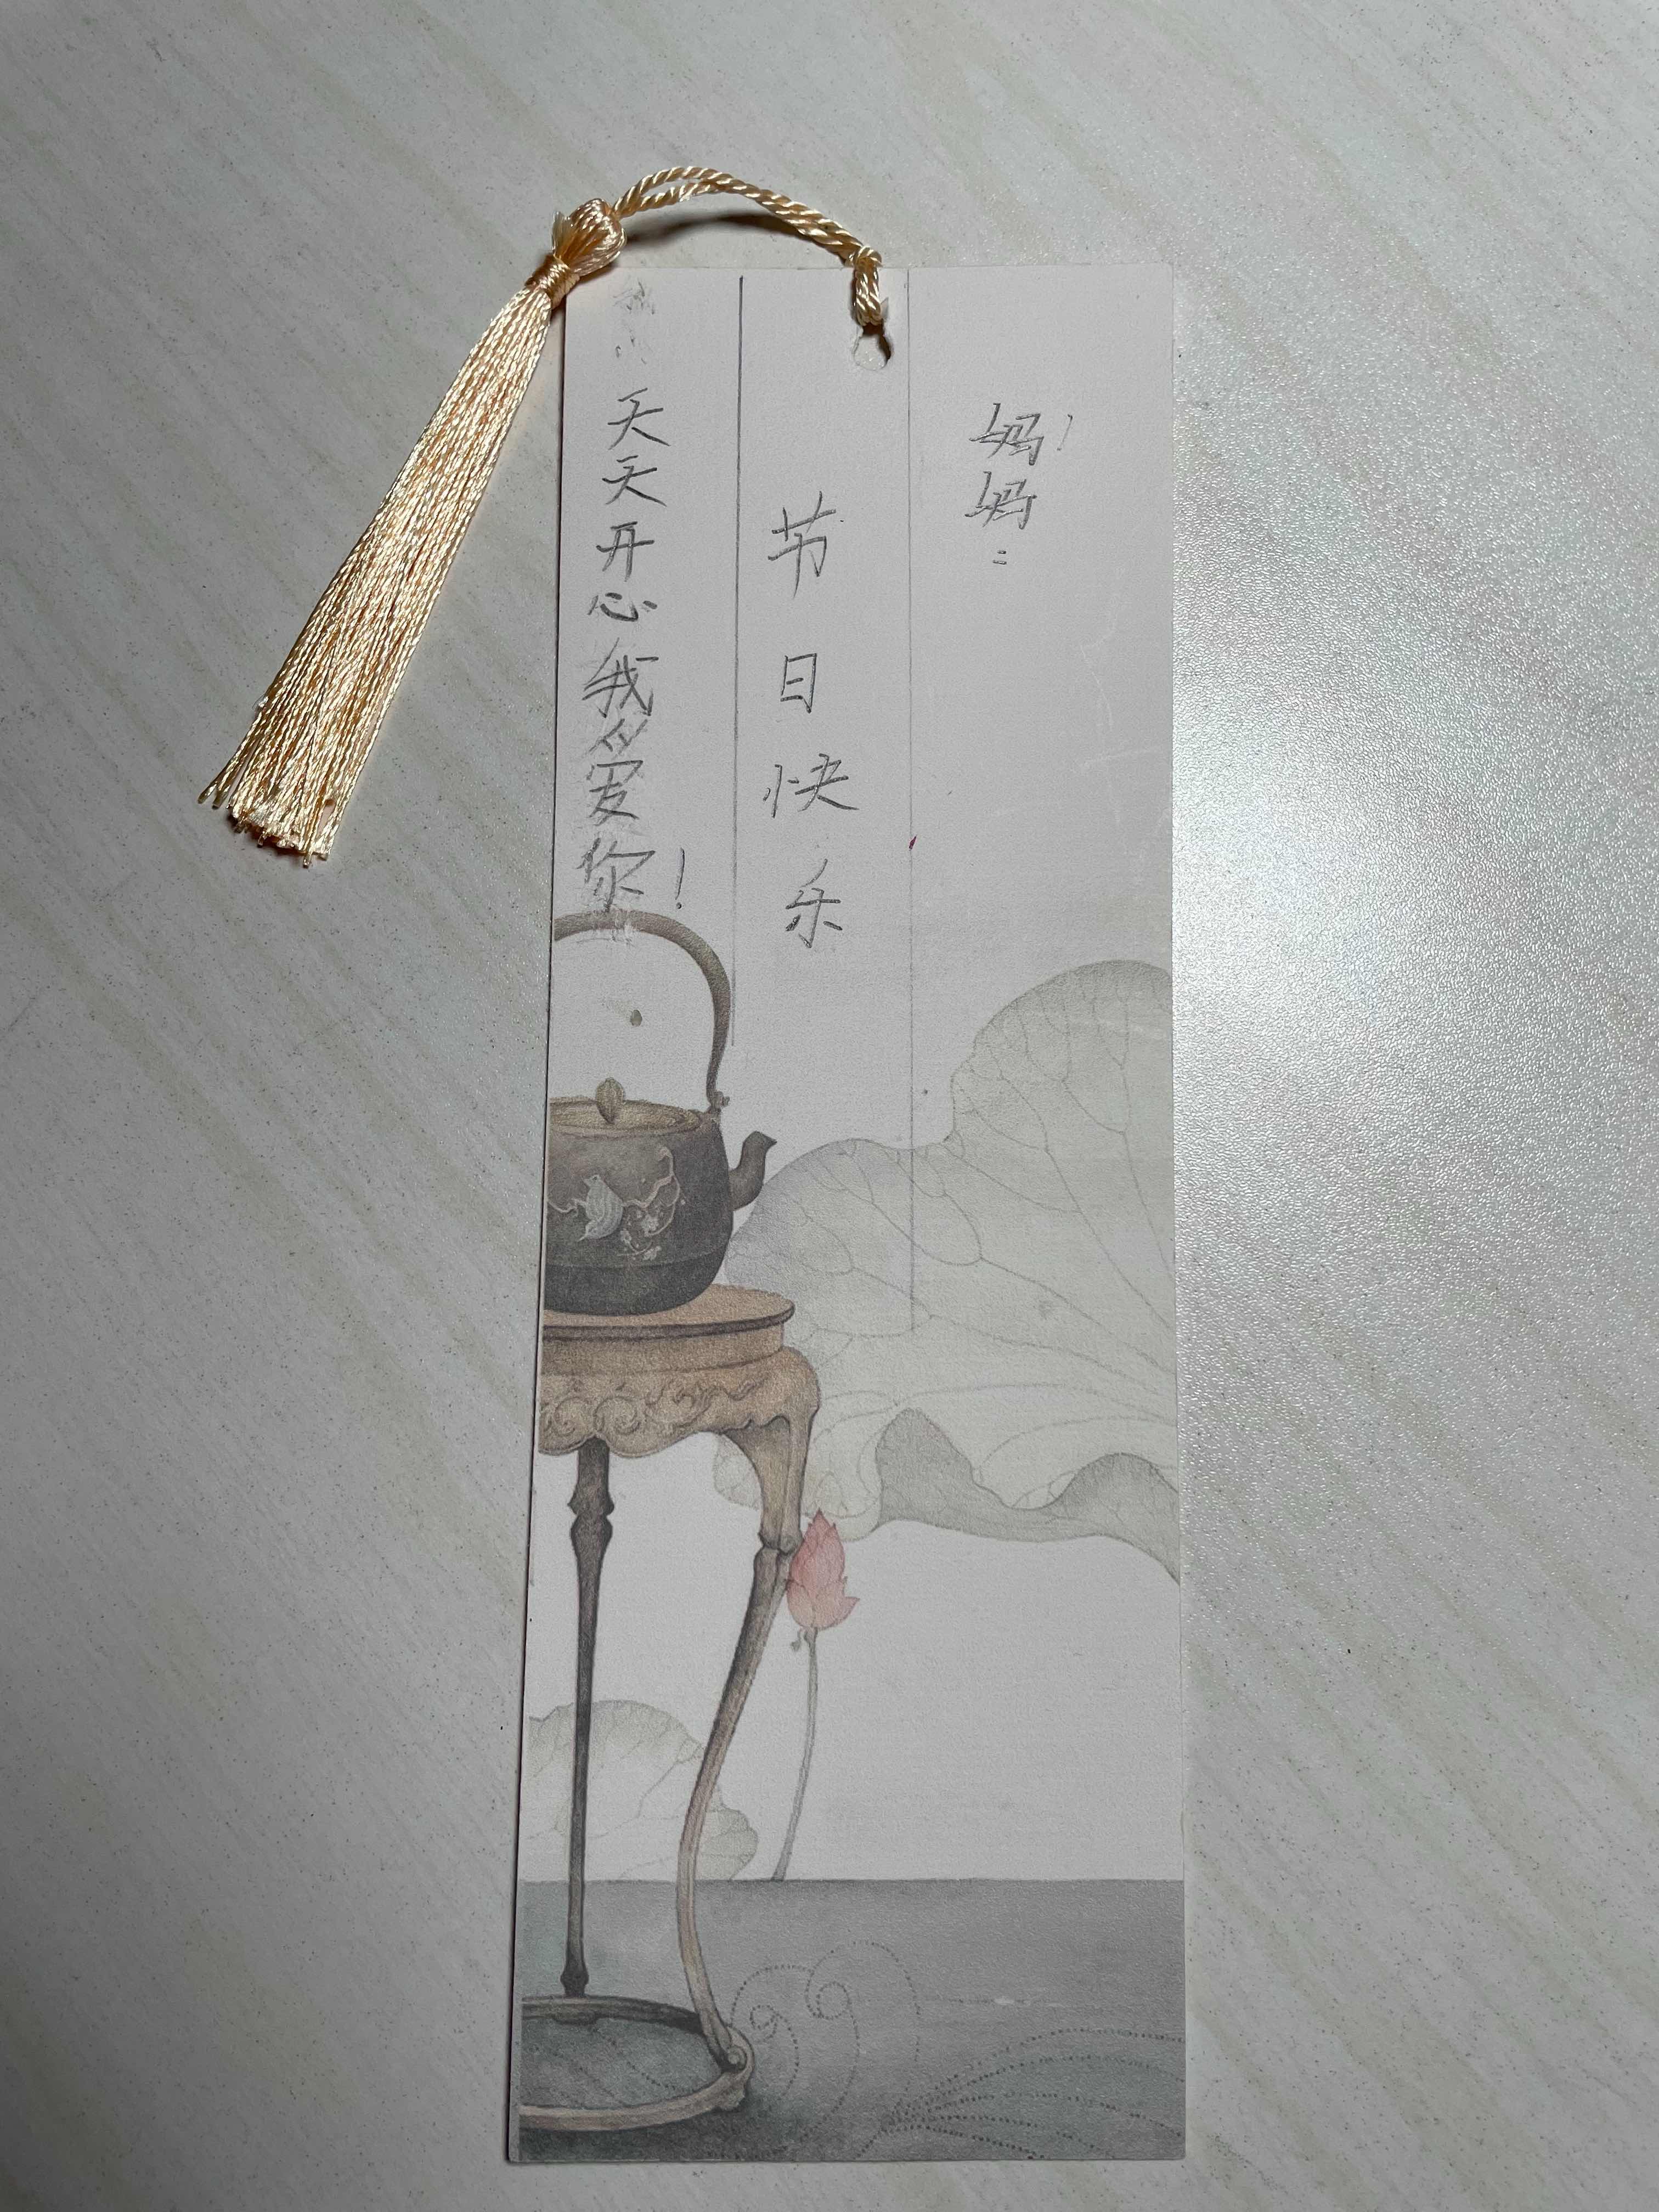 妈妈：
节日快乐
天天开心我爱你！